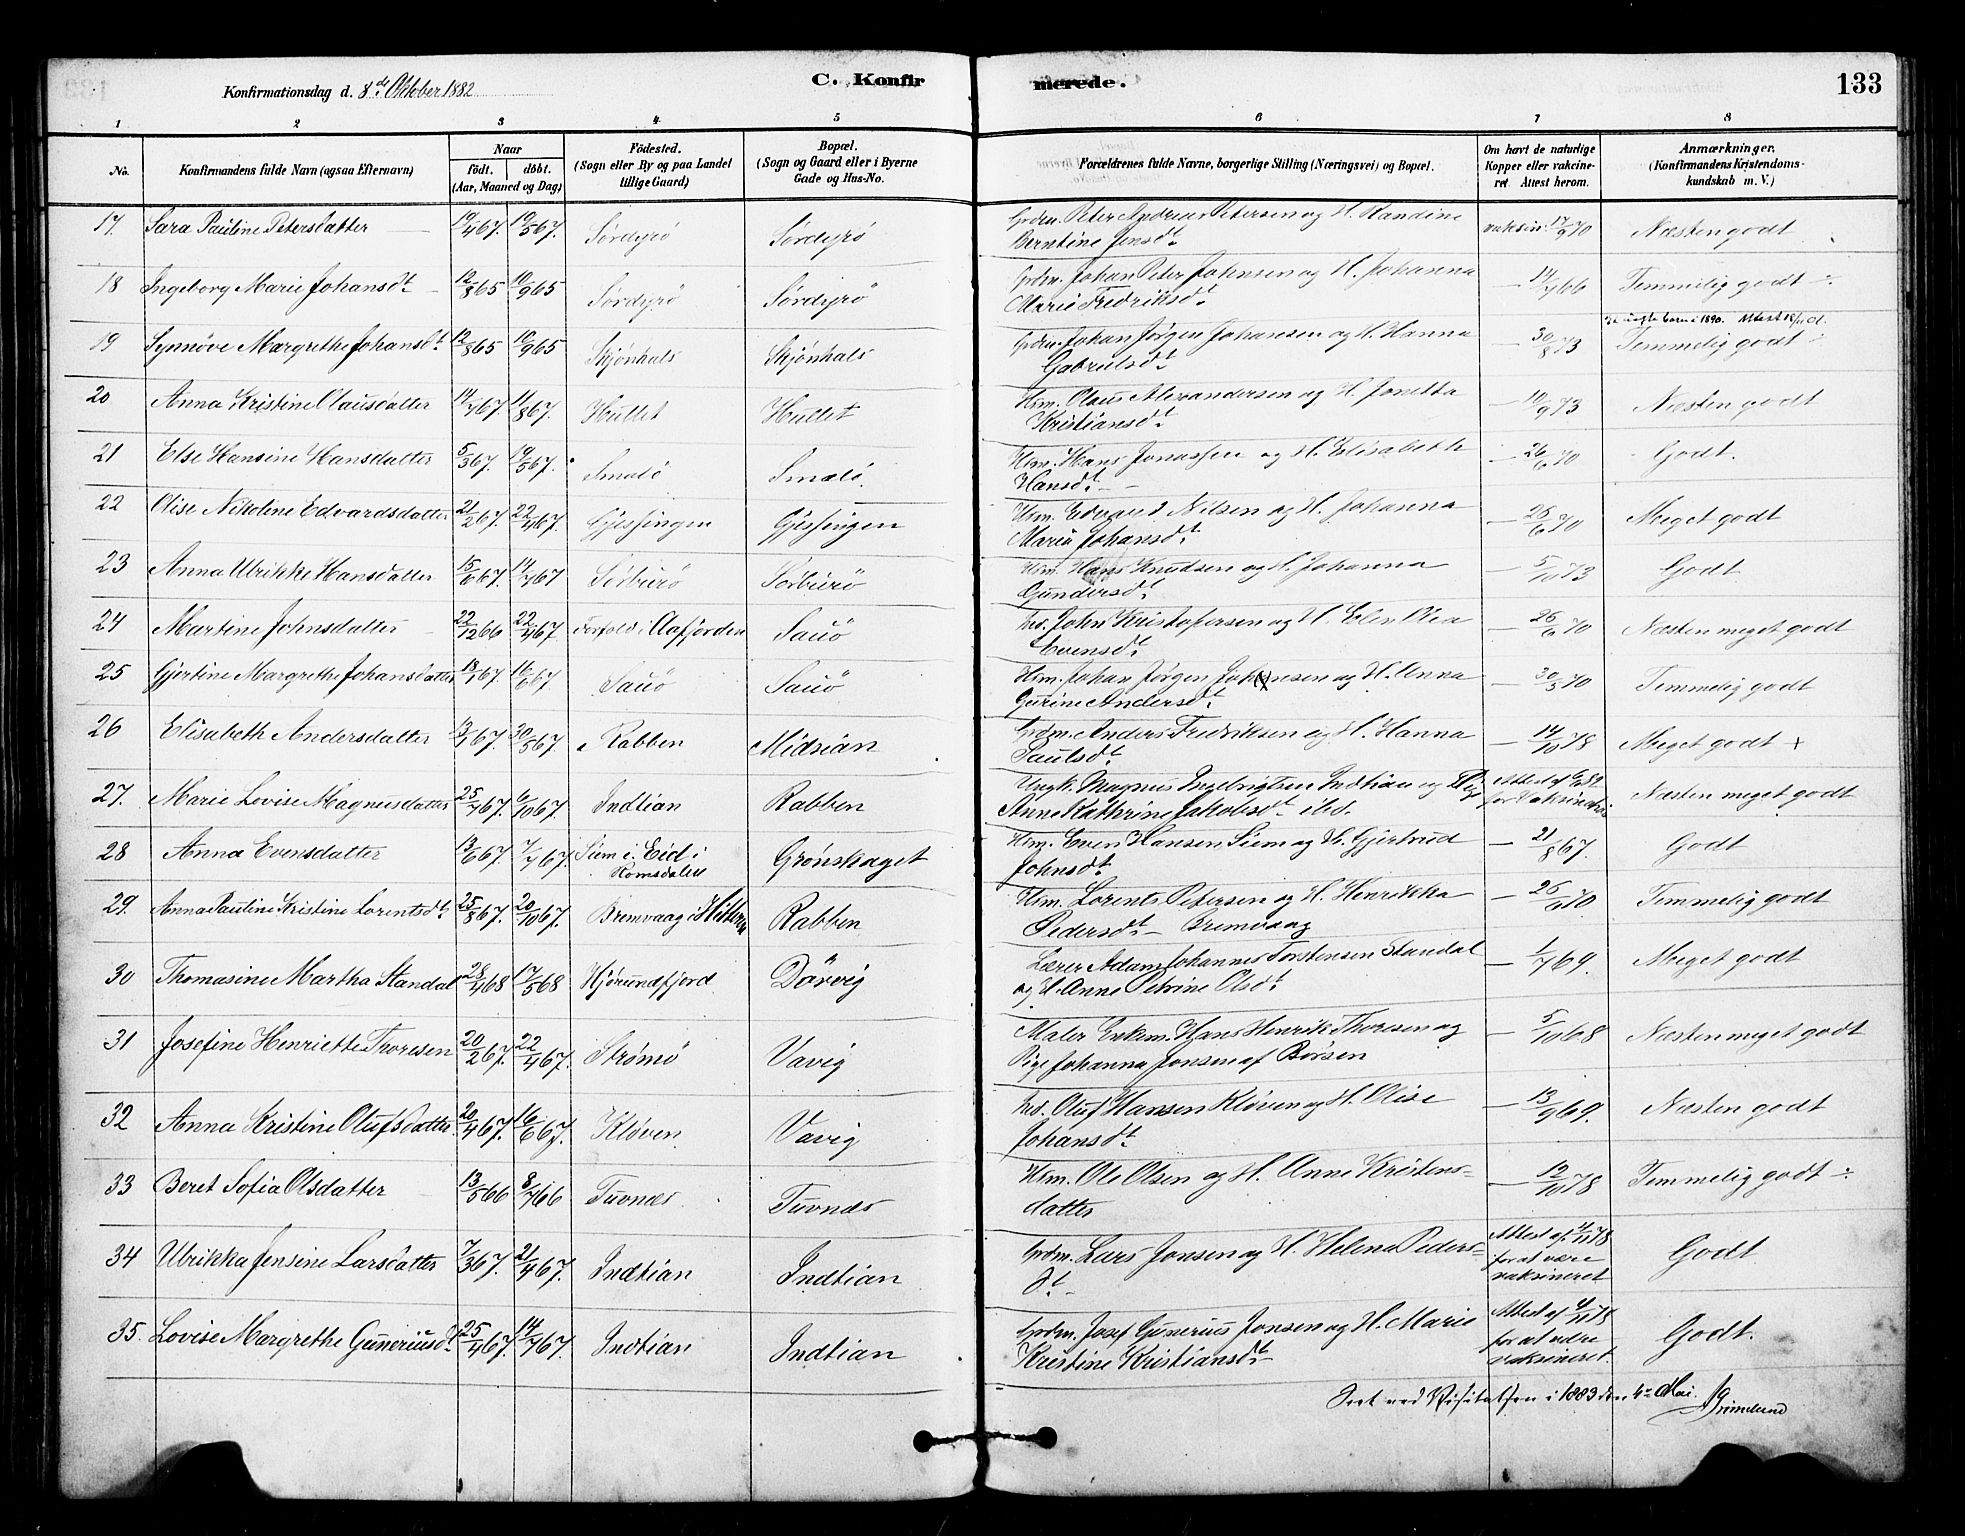 Konfirmationsdag d. 8de Oktober 1882
C. Konfirmerede.
133
1 2 3 4 5 6 7 8
No.
Konfirmandens fulde Navn (ogsaa Efternavn)
Naar
födt. döbt.
(Aar, Maaned og Dag)
Födested.
(Sogn eller By og paa Landet
tillige Gaard)
Bopæl.
(Sogn og Gaard eller i Byerne
Gade og Hus-No.
Forældrenes fulde Navne, borgerlige Stilling (Næringsvei) og Bopæl.
Om havt de naturlige
Kopper eller vakcine-
ret. Attest herom.
Anmærkninger.
(Konfirmandens Kristendoms-
kundskab m. V.)
17. Sara Pauline Petersdatter 19/4 67. 19/5 67. Sørdyrö Sørdyrö Grdm. Peter Andreas Petersen og H. Randine vaksin. 17/9 70 Næsten godt
Berntine Jensdt.
18 Ingeborg Marie Johansdt. 12/8 65 10/9 65 Sørdyrö Sørdyrö Grdm. Johan Peter Johnsen og H. Johanna — 14/7 66 Temmelig godt ÷
Marie Fredriksdt.
19 Synnöve Margrethe Johansdt. 12/8 65 10/9 65 Skjönhals Skjönhals Grdm. Johan Jørgen Johansen og H. Hanna — 30/8 73 Temmelig godt ÷
Gabrielsdt.
20 Anna Kristine Olausdatter 14/7 67 11/8 67. Hullet Hullet Hsm. Olaus Alexandersen og H. Jonetta — 10/9 73 Næsten godt
Kristiansdt.
21 Else Hansine Hansdatter 5/3 67. 19/5 67. Smalö Smalö Hsm. Hans Jonassen og H. Elisabeth — 26/6 70 Godt.
Hansdt.
22 Olise Nikoline Edvardsdatter 21/2 67. 22/4 67. Gjessingen Gjessingen Hsm. Edvard Nilsen og H. Johanna — 28/6 70 Meget godt
Maria Johansdt.
23 Anna Ulrikke Hansdatter 15/6 67. 14/7 67 Sörburö Sörburö Hsm. Hans Knudsen og H. Johanna — 5/10 73 Godt
Gundersdt.
24 Martine Johnsdatter 22/12 66 22/4 67. i Aafjorden Sauö Ind. John Kristofersen og H. Elen Olea — 26/6 70 Næsten meget godt
Evensdt.
25 Gjertine Margrethe Johansdatter 18/1 67. 16/6 67. Sauö Sauö Hsm. Johan Jørgen Johansen og H. Anna — 30/5 70 Temmelig godt
Gurine Andersdt.
26 Elisabeth Andersdatter 13/1 67. 30/5 67. Rabben Midsian Grdm. Anders Fredriksen og H. Hanna — 14/10 78 Meget godt +
Paulsdt.
27. Marie Lovise Magnusdatter 25/7 67. 6/10 67. Indtian Rabben Ungk. Magnus Ingebrigtsen Indtian og Pige Attest af Næsten meget godt
Anne Kathrine Jakobsdt. ibd. for Vaksination
28 Anna Evensdatter 13/6 67. 7/7 67. Siem i Eid i Grönskaget Hsm. Even Hansen Siem og H. Gjertrud — 21/8 67. Godt
Romsdalen Johnsdt.
29. Anna Pauline Kristine Lorentsdt. 25/8 67. 20/10 67. Bremvaag i Hitteren Rabben Hsm. Lorents Petersen og H. Henrikka — 26/6 70 Temmelig godt
Pedersdt. — Bremvaag
30 Thomasine Martha Standal 28/4 68 17/5 68 Hjörundfjord Dörvig Lærer Adam Johannes Torstensen Standal — 1/7 69. Meget godt
og H. Anne Petrine Olsdt.
31 Josefine Henriette Thoresen 20/2 67. 22/4 67. Strömö Vavig Maler Enkem. Hans Henrik Thoresen og — 5/10 68 Næsten meget godt
Pige Johanna Jonsen af Börsen
32 Anna Kristine Olufsdatter. 20/4 67. 16/6 67. Klöven Vavig Ind. Oluf Hansen Klöven og H. Olise — 13/9 69. Næsten godt
Johansdt.
33 Beret Sofia Olsdatter 13/5 66 8/7 66 Tuvnes Tuvnes Hsm. Ole Olsen og H. Anne Kristens- — 12/10 78 Temmelig godt ÷
datter
34 Ulrikka Jensine Larsdatter 7/3 67. 21/4 67. Indtian Indtian Grdm. Lars Jonsen og H. Helena Peders- Attest af 4/11 78 Godt
dt. for at være
vaksineret
35. Lovise Margrethe Guneriusdt. 25/4 67. 14/7 67. Indtian Indtian Grdm. Josef Gunerius Jonsen og H. Marie Attest af 4/11 78 Godt.
Kristine Kristiansdt. for at være
vaksineret.
Seet ved Visitatsen i 1883 den 4de Mai. Grimelund